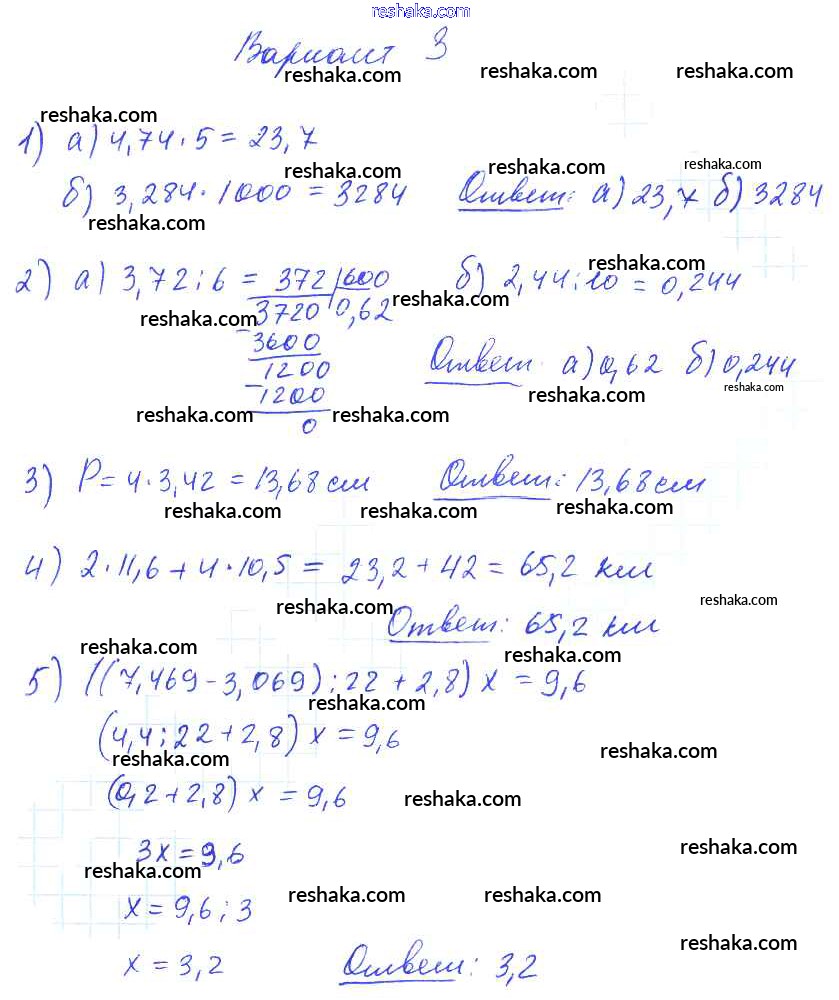 reshaka.com
Вариант 3
reshaka.com reshaka.com reshaka.com
reshaka.com
1) а) 4,74 · 5 = 23,7
reshaka.com reshaka.com
б) 3,284 · 1000 = 3284 Ответ: а) 23,7 б) 3284
reshaka.com
reshaka.com
2) а) 3,72 : 6 = 372 | 600 б) 2,44 : 10 = 0,244
reshaka.com
3720 0,62
reshaka.com
- 3600
1200 Ответ: а) 0,62 б) 0,244
reshaka.com reshaka.com
- 1200
reshaka.com reshaka.com
0
3) P = 4 · 3,42 = 13,68 см Ответ: 13,68 см
reshaka.com reshaka.com reshaka.com
4) 2 · 11,6 + 4 · 10,5 = 23,2 + 42 = 65,2 км
reshaka.com reshaka.com
Ответ: 65,2 км
reshaka.com reshaka.com
5) ((7,469 - 3,069) : 22 + 2,8) x = 9,6
reshaka.com
(4,4 : 22 + 2,8) x = 9,6
reshaka.com reshaka.com
(0,2 + 2,8) x = 9,6
reshaka.com
3x = 9,6
reshaka.com
reshaka.com
reshaka.com reshaka.com
x = 9,6 : 3
reshaka.com
x = 3,2 Ответ: 3,2